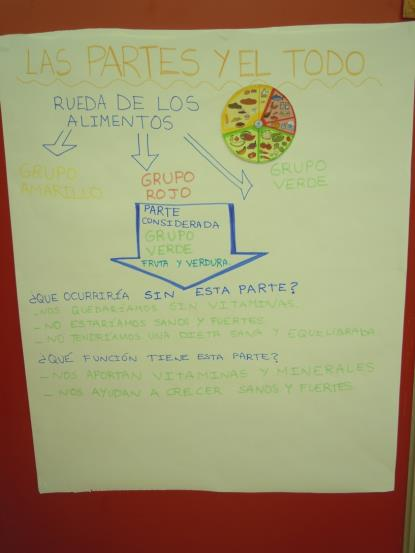 LAS PARTES Y EL TODO
RUEDA DE LOS
ALIMENTOS
GRUPO
AMARILLO
GRUPO
ROJO
GRUPO
VERDE
PARTE
CONSIDERADA
GRUPO
VERDE
FRUTA Y VERDURA.
¿QUE OCURRIRÍA SIN ESTA PARTE?
- NOS QUEDARÍAMOS SIN VITAMINAS.
- NO ESTARÍAMOS SANOS Y FUERTES.
- NO TENDRÍAMOS UNA DIETA SANA Y EQUILIBRADA
¿QUÉ FUNCIÓN TIENE ESTA PARTE?
- NOS APORTAN VITAMINAS Y MINERALES
- NOS AYUDAN A CRECER SANOS Y FUERTES.